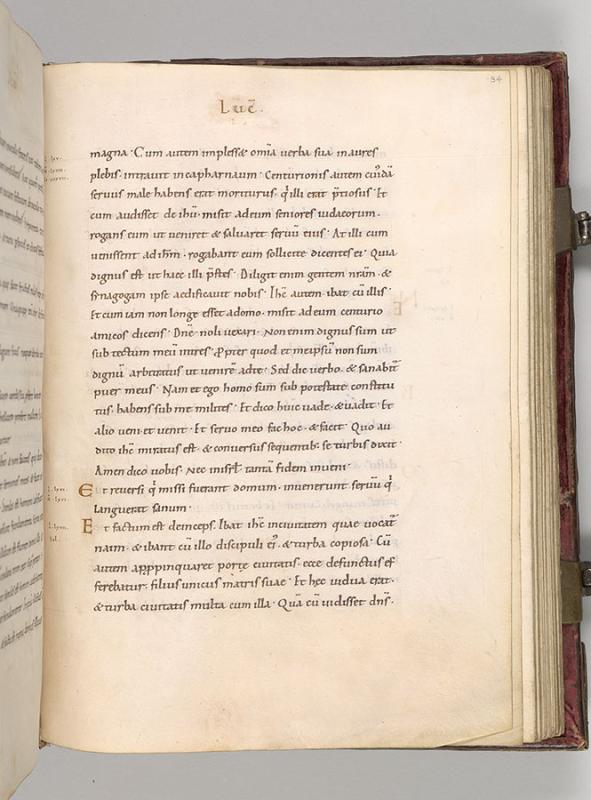 34
Lucͣ.
magna · Cum autem implesset om̄ia uerba sua in aures
plebis · intrauit in capharnaum · Centurionis autem cuiꝰdā
seruus male habens erat moriturus · q̇ illi erat p̄tiosus · Et
cum audisset de ihū · misit ad eum seniores iudaeorum ·
rogans eum ut ueniret & saluaret seruū eius · At illi cum
uenissent ad ihm̄ · rogabant eum sollicite dicentes ei · Quia
dignus est ut haec illi p̄stes · Diligit enim gentem nr̄am · &
synagogam ipse aedificauit nobis · Ihc̄ autem ibat cū illis ·
Et cum iam non longe esset a domo · misit ad eum centurio
amicos dicens · Dn̄e noli uexari · Non enim dignus sum ut
sub tectum meū intres · Propter quod et meipsū non sum
dignū arbitratus ut venirē ad te · Sed dic uerbo · & sanabit̄
puer meus · Nam et ego homo sum sub potestate constitu
tus · habens sub me milites · Et dico huic uade · & uadit · Et
alio ueni · et uenit · Et seruo meo fac hoc · & facit · Quo au
dito ihc̄ miratus est · & conuersus sequentib; se turbis dixit ·
Amen dico uobis · Nec in isrl̄ tantā fidem inueni ·
Et reuersi q̇ missi fuerant domum · inuenerunt seruū q̇
languerat sanum ·
Et factum est deinceps · Ibat ihc̄ in ciuitatem quae uocat̄
naim · & ibant cū illo discipuli eiꝰ · & turba copiosa · Cū
autem appropinquaret porte ciuitatis · ecce defunctus ef
ferebatur · filius unicus matris suae · Et hec uidua erat ·
& turba ciuitatis multa cum illa · Quā cū uidisset dn̄s ·